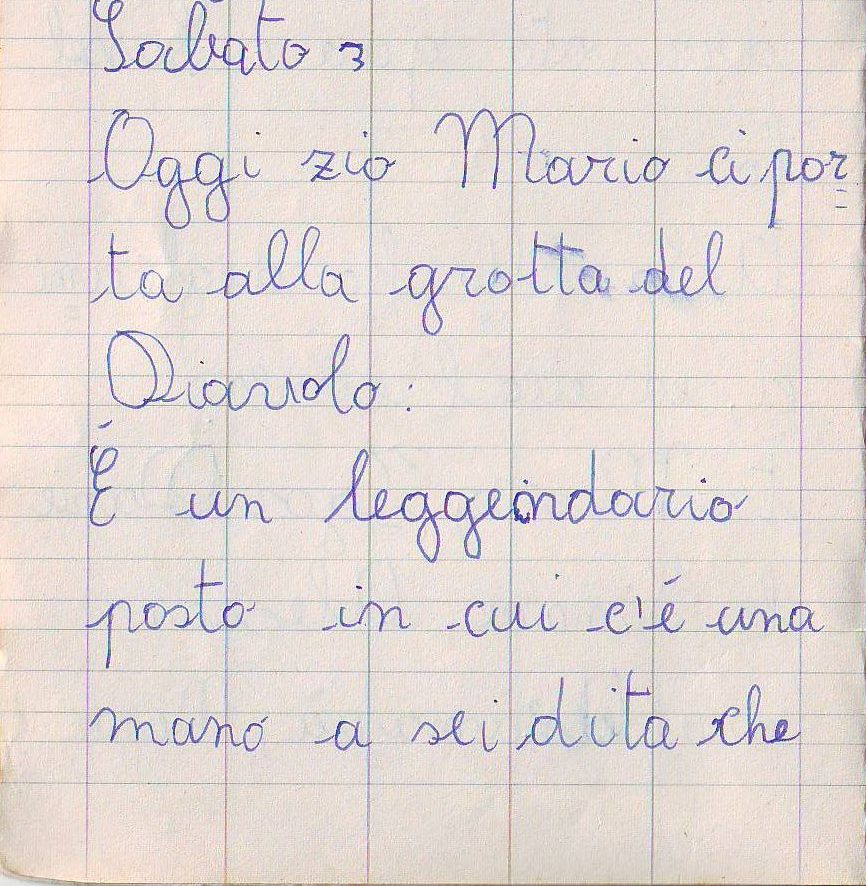 Sabato 3
Oggi zio Mario ci por=
ta alla grotta del
Diavolo:
É un leggendario
posto in cui c'é una
mano a sei dita che